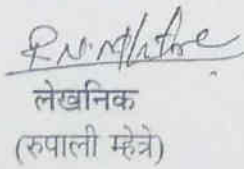 R.N. Mhatre
लेखनिक
(रुपाली म्हेत्रे)